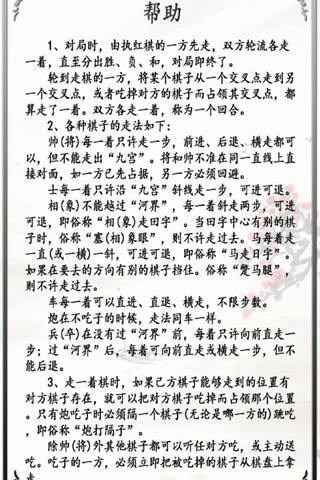 帮助
1、对局时,由执红棋的一方先走,双方轮流各走
一着,直至分出胜、负、和,对局即终了。
轮到走棋的一方,将某个棋子从一个交叉点走到另
一个交叉点,或者吃掉对方的棋子而占领其交叉点,都
算走了一着。双方各走一着,称为一个回合。
2、各种棋子的走法如下:
帅(将)每一着只许走一步,前进、后退、横走都可
以,但不能走出“九宫”。将和帅不准在同一直线上直
接对面,如一方已先占据,另一方必须回避。
士每一着只许沿“九宫”斜线走一步,可进可退。
相(象)不能越过“河界”,每一着斜走两步,可进
可退,即俗称“相(象)走田字”。当田字中心有别的棋
子时,俗称“塞(相)象眼”,则不许走过去。马每着走
一直(或一横)一斜,可进可退,即俗称“马走日字”。
如果在要去的方向有别的棋子挡住。俗称“蹩马腿”,
则不许走过去。
车每一着可以直进、直退、横走,不限步数。
炮在不吃子的时候,走法同车一样。
兵(卒)在没有过“河界”前,每着只许向前直走一
步;过“河界”后,每着可向前直走或横走一步,但不
能后退。
3、走一着棋时,如果己方棋子能够走到的位置有
对方棋子存在,就可以把对方棋子吃掉而占领那个位置。
只有炮吃子时必须隔一个棋子(无论是哪一方的)跳吃,
即俗称“炮打隔子”。
除帅(将)外其他棋子都可以听任对方吃,或主动送
吃。吃子的一方,必须立即把被吃掉的棋子从棋盘上拿
走。